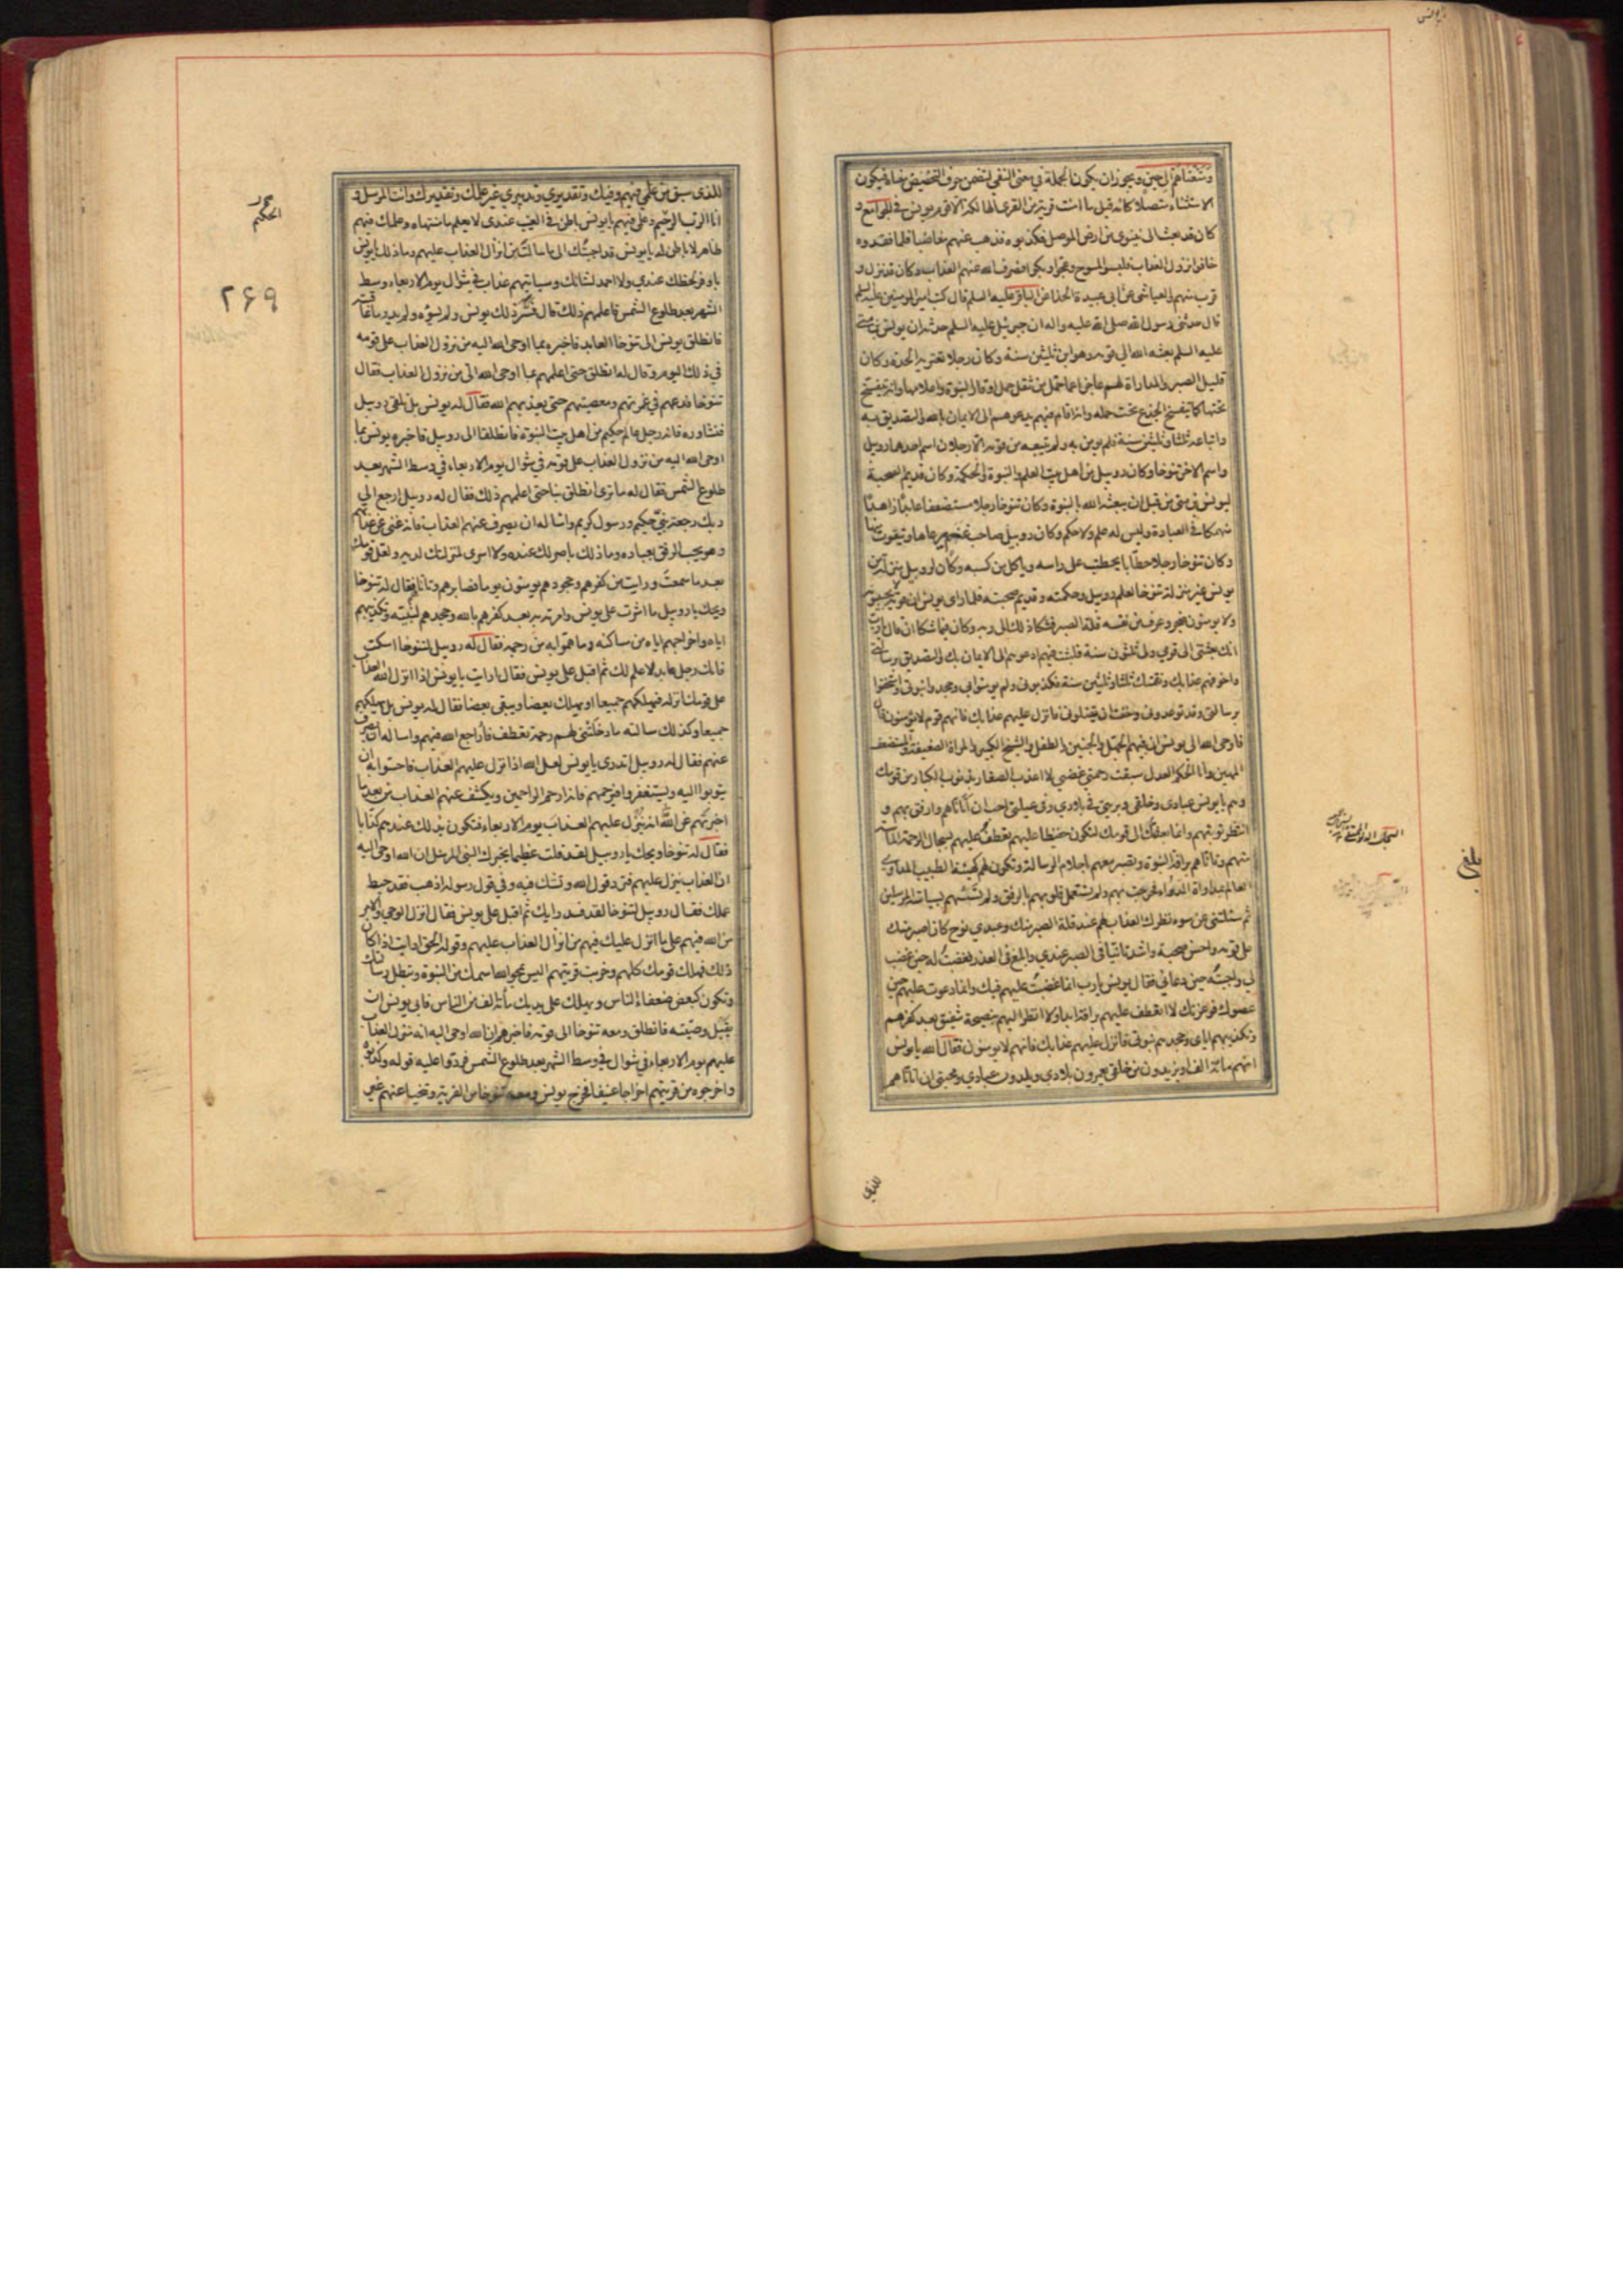 ومتعناهم الى حين ويجوز ان يكون الجملة في معنى النفي لتضمن حرف التحضيض معناه فيكون
الاستثناء متصلا كانه قيل ما امنت قرية من القرى الهالكة الا قوم يونس في الجوامع و
كان قد بعث الى نينوى من ارض الموصل فكذبوه فذهب عنهم مغاضبا فلما فقدوه
خافوا نزول العذاب فلبسوا المسوح وعجوا وبكوا فصرف الله عنهم العذاب وكان قد نزل و
قرب منهم والعياشى عن ابى عبيدة الحذا عن الباقر عليه السلم قال كتب امير المومنين عليه السلم
قال حدثنى رسول الله صلى الله عليه واله ان جبرئيل عليه السلم حدثه ان يونس بن متى
عليه السلم بعثه الله الى قومه وهو ابن ثلثين سنة وكان رجلا تعتريه الحدة وكان
قليل الصبر والمداراة لهم عاجزا عما حمل من ثقل حمل اوقار النبوة واعلامها وانه يتفسخ
تحتها كما يتفسخ الجذع تحت حمله وانه اقام فيهم يدعوهم الى الايمان بالله والتصديق به
واتباعه ثلثا وثلثين سنة فلم يومن به ولم يتبعه من قومه الا رجلان اسم احدهما روبيل
واسم الاخر تنوخا وكان روبيل من اهل بيت العلم والنبوة والحكمة وكان قديم الصحبة
ليونس بن متى من قبل ان يبعثه الله بالنبوة وكان تنوخا رجلا مستضعفا عابدا زاهدا
منهمكا في العبادة وليس له علم ولا حكم وكان روبيل صاحب غنم يرعاها ويتقوت منها
وكان تنوخا رجلا حطابا يحطتب على راسه وياكل من كسبه وكان لروبيل منزلة من
يونس غير منزلة تنوخا لعلم روبيل وحكمته وقديم صحبته فلما راى يونس ان قومه لا يجيبونه
ولا يومنون ضجر وعرف من نفسه قلة الصبر فشكا ذلك الى ربه وكان فيما شكا ان قال يا رب
انك بعثتى الى قومى ولى ثلثون سنة فلبثت فيهم ادعوهم الى الايمان بك والتصديق برسالتى
واخوفهم عذابك ونقمتك ثلثا وثلثين سنة فكذبونى ولم يومنوا بى وجحدوا نبوتى واستخفوا
برسالتى وقد توعدونى وخفت ان يقتلونى فانزل عليهم عذابك فانهم قوم لا يومنون قال
فاوحى الله الى يونس ان فيهم الحمل والجنين والطفل والشيخ الكبير والمراة الضعيفة والمستضعف
المهين وانا الحكم العدل سبقت رحمتى غضبى لا اعذب الصغار بذنوب الكبار من قومك
وهم يا يونس عبادى وخلقى وبريتى في بلادى وفى عيلتى احب ان اتاناهم وارفق بهم و
انتظر توبتهم وانما بعثتك الى قومك لتكون حفيظا عليهم تعطف عليهم بسجال الرحمة الماسة
منهم وتاناهم برافة النبوة وتصبر معهم باحلام الرسالة وتكون لهم كهيئة الطبيب المداوى
العالم بمداواة الدواء فخرجت بهم ولم تستعمل قلوبهم بالرفق ولم تسسهم بسياسة المرسلين
ثم سئلتنى عن سوء نظرك العذاب لهم عند قلة الصبر منك وعبدى نوح كان اصبر منك
على قومه واحسن صحبة واشد تانيا في الصبر عندى وابلغ فى العذر فغضبت له حين غضب
لى واجبته حين دعانى فقال يونس يا رب انما غضبت عليهم فيك وانما دعوت عليهم حين
عصوك فوعزتك لا اتعطف عليهم برافة ابدا ولا انظر اليهم بنصيحة شفيق بعد كفرهم
وتكذيبهم اياى وجحدهم نبوتى فانزل عليهم عذابك فانهم لا يومنون فقال الله يا يونس
انهم مائة الف او يزيدون من خلقى يعمرون بلادى ويلدون عبادى ومحبتى ان اتاناهم
للذى
بلغ
للذى سبق من علمى فيهم وفيك وتقديرى وتدبيرى غير علمك وتقديرك وانت المرسل و
انا الرب الرحيم وعلمى فيهم يا يونس باطن فى الغيب عندى لا يعلم ما منتهاه وعلمك فيهم
ظاهر لا باطن له يا يونس قد اجبتك الى ما سالت من انزال العذاب عليهم وما ذلك يا يونس
باوفر لحظك عندى ولا احمد لشانك وسياتيهم عذاب في شوال يوم الاربعاء وسط
الشهر بعد طلوع الشمس فاعلمهم ذلك قال فسر ذلك يونس ولم يسوه ولم يدر ما عاقبته
فانطلق يونس الى تنوخا العابد فاخبره بما اوحى الله اليه من نزول العذاب على قومه
في ذلك اليوم وقال له انطلق حتى اعلمهم بما اوحى الله الى من نزول العذاب فقال
تنوخا فدعهم في غمرتهم ومعصيتهم حتى يعذبهم الله فقال له يونس بل نلقى روبيل
فنشاوره فانه رجل عالم حكيم من اهل بيت النبوة فانطلقا الى روبيل فاخبره يونس بما
اوحى الله اليه من نزول العذاب على قومه في شوال يوم الاربعاء في وسط الشهر بعد
طلوع الشمس فقال له ما ترى انطلق بنا حتى اعلمهم ذلك فقال له روبيل ارجع الى
ربك رجعة نبى حكيم ورسول كريم واساله ان يصرف عنهم العذاب فانه غنى عن عذابهم
وهو يحب الرفق بعباده وما ذلك باضر لك عنده ولا اسوى لمنزلتك لديه ولعل قومك
بعد ما سمعت ورايت من كفرهم وجحودهم يومنون يوما فصابرهم وتاناهم فقال له تنوخا
ويحك يا روبيل ما اشرت على يونس وامرته به بعد كفرهم بالله وجحدهم لنبيه وتكذيبهم
اياه واخراجهم اياه من مساكنه وما هموا به من رجمه فقال له روبيل لتنوخا اسكت
فانك رجل عابد لا علم لك ثم اقبل على يونس فقال ارايت يا يونس اذا انزل الله العذاب
على قومك انزله فيهلكهم جميعا او يهلك بعضا ويبقى بعضا فقال له يونس بل يهلكهم
جميعا وكذلك سالته ما دخلتنى لهم رحمة تعطف فاراجع الله فيهم واساله ان يصرف
عنهم فقال له روبيل اتدرى يا يونس لعل الله اذا انزل عليهم العذاب فاحسوا به ان
يتوبوا اليه ويستغفروا فيرحمهم فانه ارحم الراحمين ويكشف عنهم العذاب من بعد ما
اخبرتهم عن الله انه ينزل عليهم العذاب يوم الاربعاء فتكون بذلك عندهم كذابا
فقال له تنوخا ويحك يا روبيل لقد قلت عظيما يخبرك النبى المرسل ان الله اوحى اليه
ان العذاب ينزل عليهم فترد قول الله وتشك فيه وفى قول رسوله اذهب فقد حبط
عملك فقال روبيل لتنوخا لقد فسد رايك ثم اقبل على يونس فقال انزل الوحى والامر
من الله فيهم على ما انزل عليك فيهم من انزال العذاب عليهم وقوله الحق ارايت اذا كان
ذلك فهلك قومك كلهم وخربت قريتهم اليس يمحو الله اسمك من النبوة وتبطل رسالتك
وتكون كبعض ضعفاء الناس ويهلك على يديك مائة الف من الناس فابى يونس ان
يقبل وصيته فانطلق ومعه تنوخا الى قومه فاخبرهم ان الله اوحى اليه انه منزل العذاب
عليهم يوم الاربعاء في شوال في وسط الشهر بعد طلوع الشمس فردوا عليه قوله وكذبوه
واخرجوه من قريتهم اخراجا عنيفا فخرج يونس ومعه تنوخا من القرية وتنحيا عنهم غير
الحكيم
۲۶۹